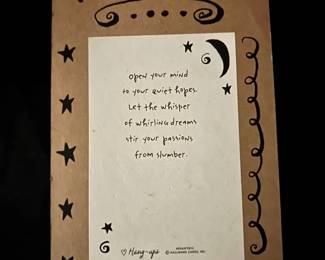 Open your mind
to your quiet hopes.
Let the whisper
of whirling dreams
stir your passions
from slumber.
Hang-ups
© HALLMARK CARDS, INC.